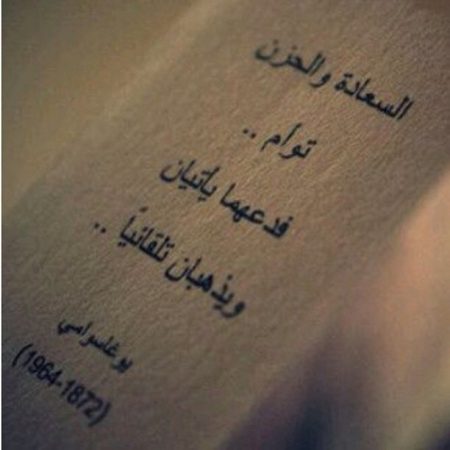 السعادة والحزن
توأم ..
فدعهما يأتيان
ويذهبان تلقائياً ..
يوغاسوامي
(1964-1872)